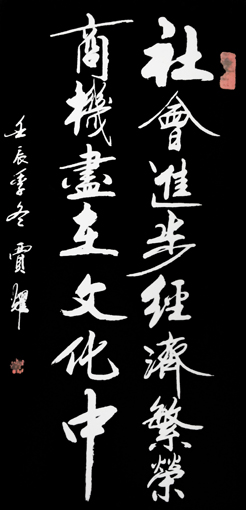 社會進步經濟繁榮
商機盡在文化中
壬辰季冬賈耀